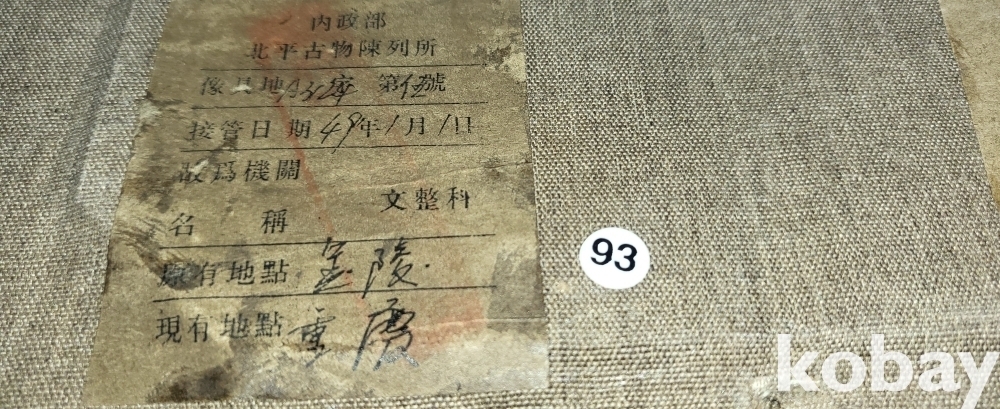 內政部
北平古物陳列所
像具地 字 第 號
接管日期 49年1月1日
改爲機關
文整科
名稱
原有地點 金陵
現有地點 重慶
93
kobay